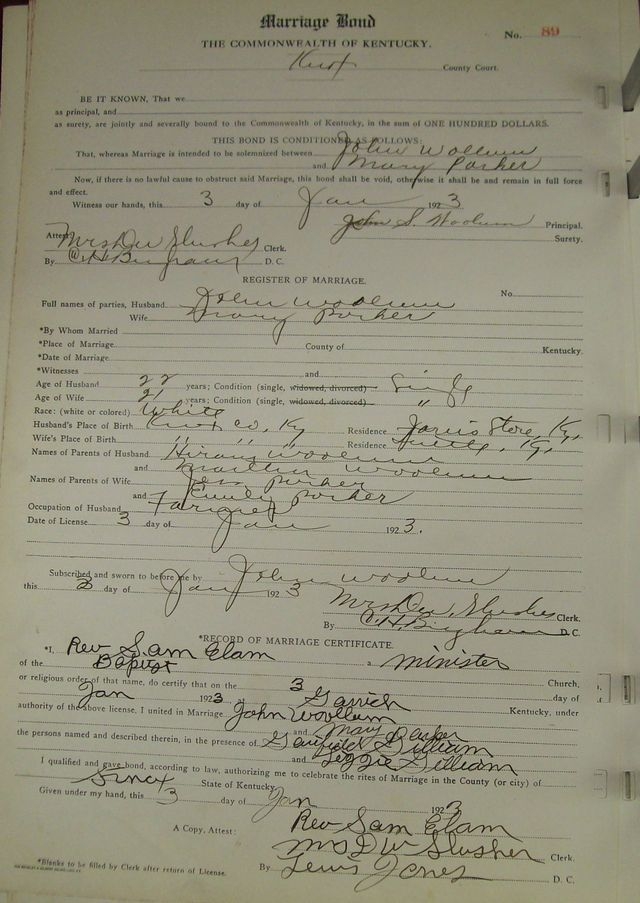 Marriage Bond
No. 89
THE COMMONWEALTH OF KENTUCKY.
Knox County Court.
BE IT KNOWN, That we
as principal, and
as surety, are jointly and severally bound to the Commonwealth of Kentucky, in the sum of ONE HUNDRED DOLLARS.
THIS BOND IS CONDITIONED AS FOLLOWS:
That, whereas Marriage is intended to be solemnized between John Woollum
and Mary Parker
Now, if there is no lawful cause to obstruct said Marriage, this bond shall be void, otherwise it shall be and remain in full force
and effect.
Witness our hands, this 3 day of Jan 1923
John S. Woolum Principal.
Surety.
Attest Mrs D W Slusher Clerk.
By C H Bingham D. C.
REGISTER OF MARRIAGE.
No.
Full names of parties, Husband John Woollum
Wife Mary Parker
*By Whom Married
*Place of Marriage County of Kentucky.
*Date of Marriage
*Witnesses and
Age of Husband 22 years; Condition (single, widowed, divorced) Single
Age of Wife 21 years; Condition (single, widowed, divorced) "
Race: (white or colored) White
Husband's Place of Birth Knox Co, Ky Residence Store, Ky,
Wife's Place of Birth " " " Residence Ky,
Names of Parents of Husband Hiram Woollum
and Woollum
Names of Parents of Wife Parker
and Emily Parker
Occupation of Husband Farmer
Date of License 3 day of Jan 1923.
Subscribed and sworn to before me by John Woollum
this 3 day of Jan 1923
Mrs D W Slusher Clerk.
By C. H. Bingham D. C.
*RECORD OF MARRIAGE CERTIFICATE.
*I, Rev Sam Elam a minister
of the Baptist Church,
or religious order of that name, do certify that on the 3 day of
Jan 1923 at Garrich Kentucky, under
authority of the above license, I united in Marriage John Woollum
and Mary Parker
the persons named and described therein, in the presence of Garfield Gilliam
and Gilliam
I qualified and gave bond, according to law, authorizing me to celebrate the rites of Marriage in the County (or city) of
Knox State of Kentucky
Given under my hand, this 3 day of Jan 1923
Rev Sam Elam
A Copy, Attest: Mrs D W Slusher Clerk.
By Lewis Jones D. C.
*Blanks to be filled by Clerk after return of License.